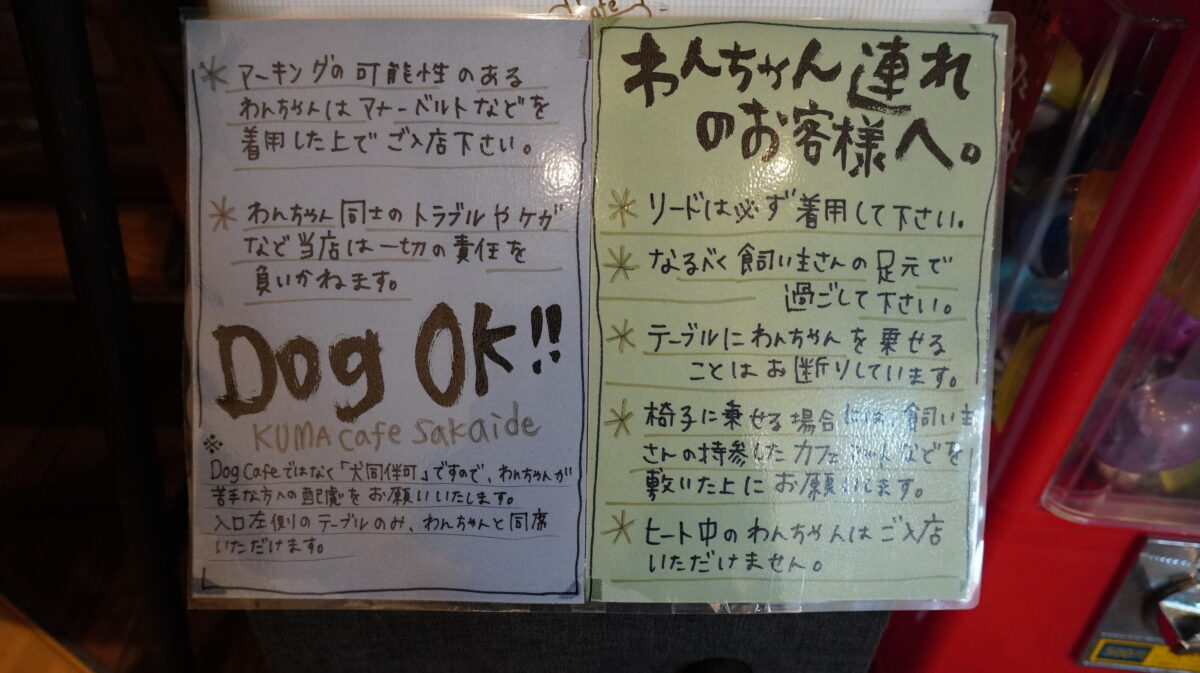 afe
＊マーキングの可能性のある
わんちゃんはマナーベルトなどを
着用した上でご入店下さい。
＊わんちゃん同士のトラブルやケガ
など当店は一切の責任を
負いかねます。
Dog OK!!
KUMA cafe sakaide
※
Dog Cafeではなく「犬同伴可」ですので、わんちゃんが
苦手な方への配慮をお願いいたします。
入口左側のテーブルのみ、わんちゃんと同席
いただけます。
わんちゃん連れ
のお客様へ。
＊リードは必ず着用して下さい。
＊なるべく飼い主さんの足元で
過ごして下さい。
＊テーブルにわんちゃんを乗せる
ことはお断りしています。
＊椅子に乗せる場合には、飼い主
さんの持参したカフェマットなどを
敷いた上にお願いします。
＊ヒート中のわんちゃんはご入店
いただけません。